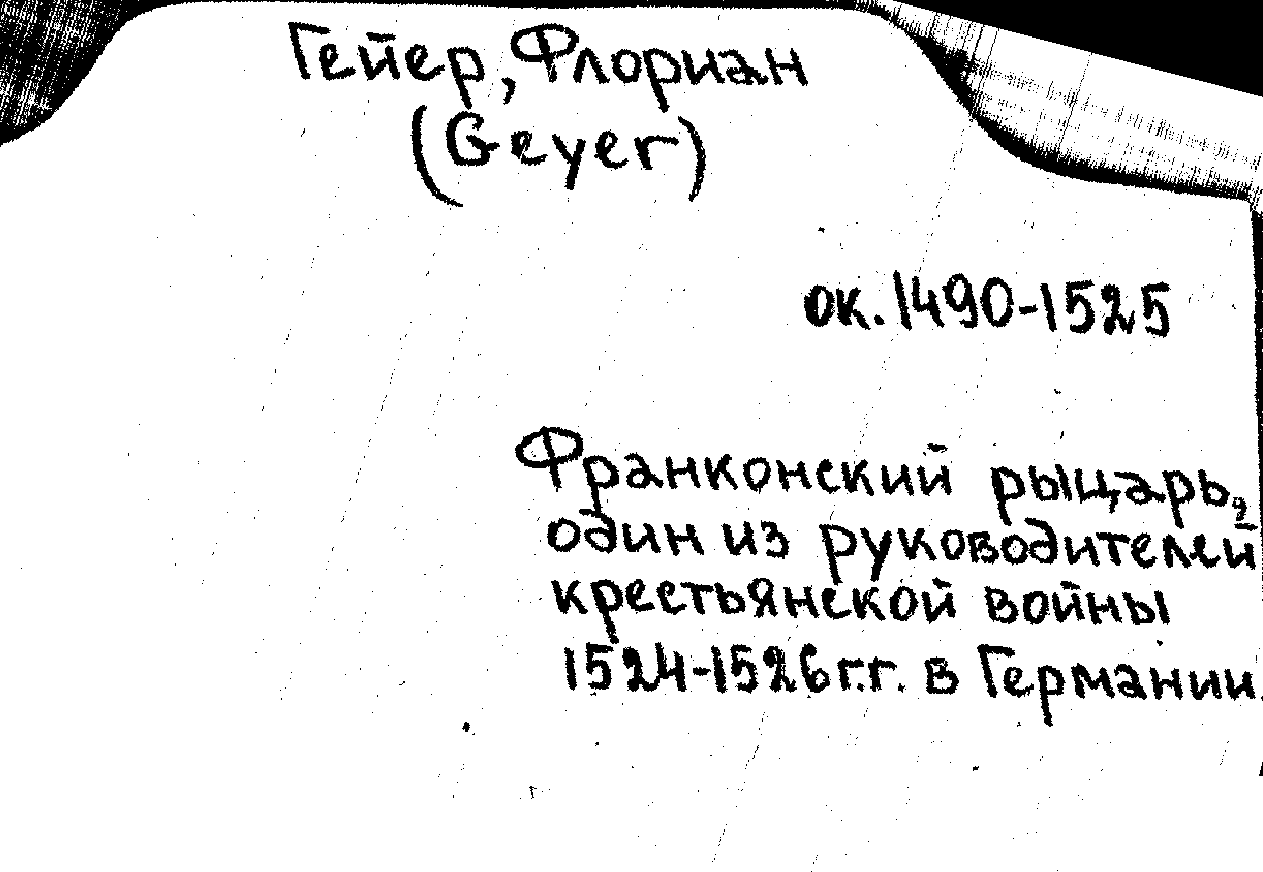 Гейер, Флориан
(Geyer)
ок. 1490-1525
Франконский рыцарь,
один из руководителей
крестьянской войны
1524-1526 г.г. в Германии.